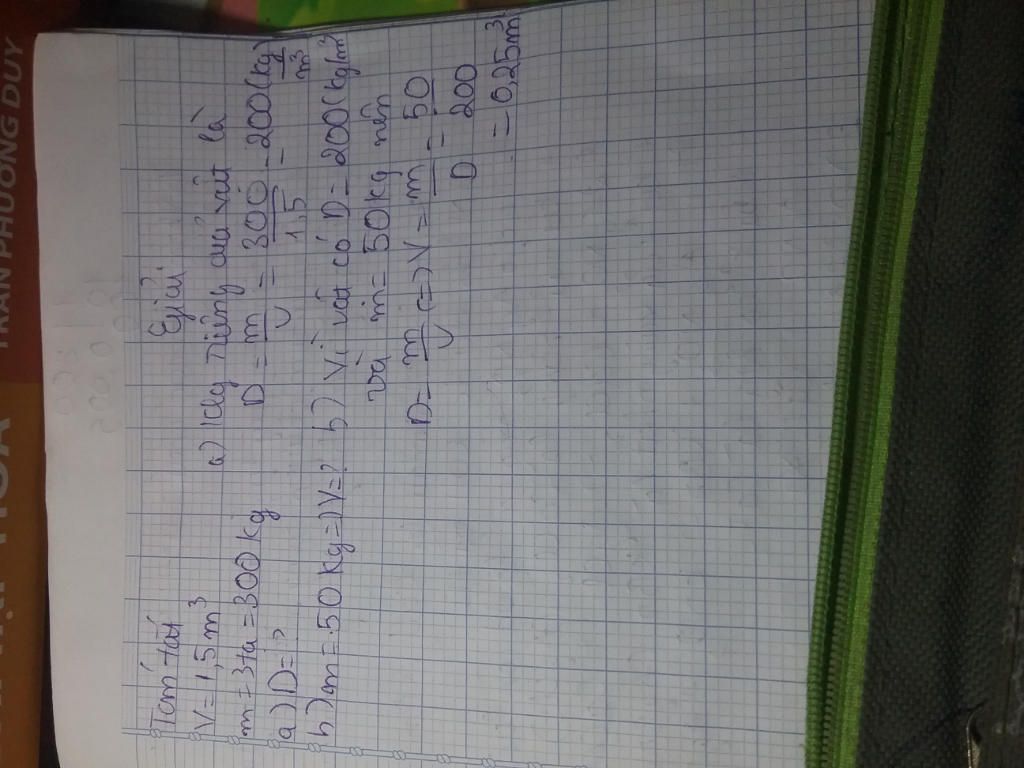 TRẦN PHƯƠNG DUY
Tóm tắt
V = 1,5 m³
m = 3 tạ = 300 kg
a) D = ?
b) m = 50 kg => V = ?
Giải
a) KLg riêng của vật là
D = m/V = 300/1,5 = 200 (kg/m³)
b) Vì vật có D = 200 (kg/m³
và m = 50 kg nên
D = m/V <=> V = m/D = 50/200
= 0,25 m³